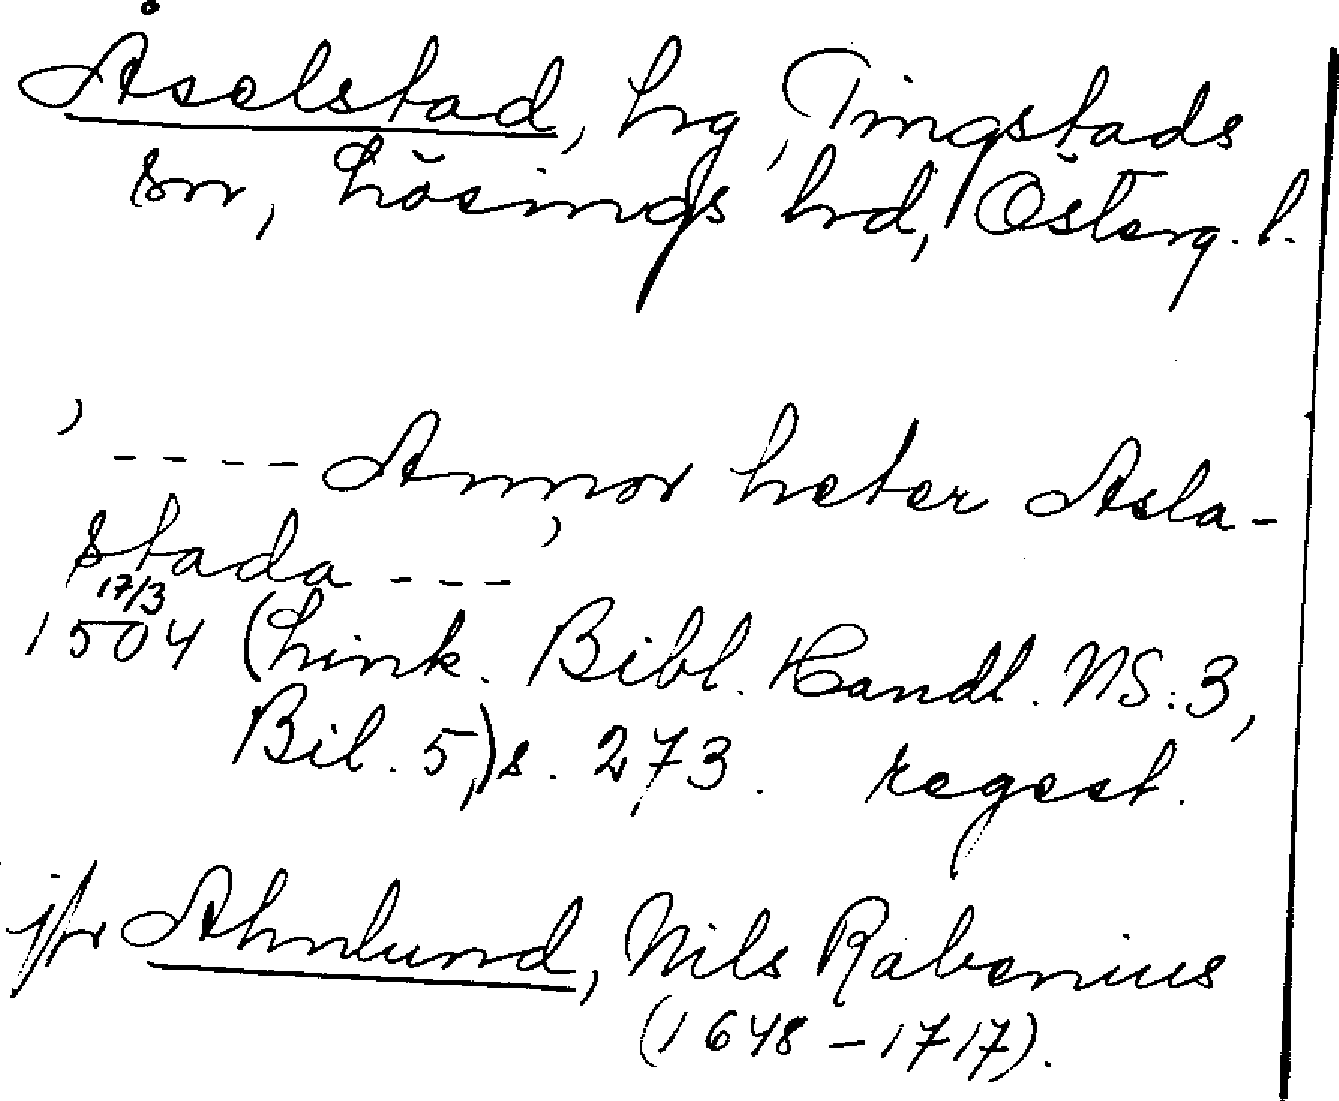 Åselstad, hg, Tingstads
sn, Lösings hrd, Österg. l.
, ---- Annor heter Asla-
stada ---
17/3
1504 (Link. Bibl. Handl. NS:3,
Bil. 5,) s. 273. regest.
jfr Ahnlund, Nils Rabenius
(1648-1717).